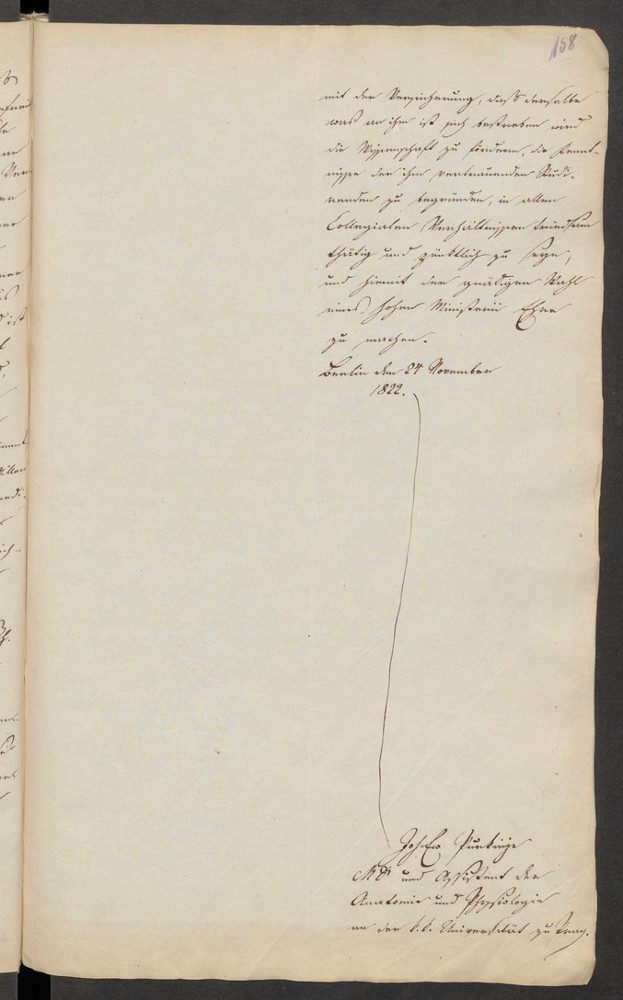 158
mit der Versicherung, daß derselbe
was an ihm ist sich bestreben wird
die Wissenschaft zu fördern, die Kennt-
nisse der ihm vertrauenden Studi-
renden zu begründen, in allen
Collegialen Verhältnissen friedsam
thätig und pünktlich zu seyn,
und hiemit der gnädigen Wahl
eines hohen Ministerii Ehre
zu machen.
Berlin den 24 November
1822.
Joh Ev Purkinje
MD und Assistent der
Anatomie und Physiologie
an der k.k. Universität zu Prag.